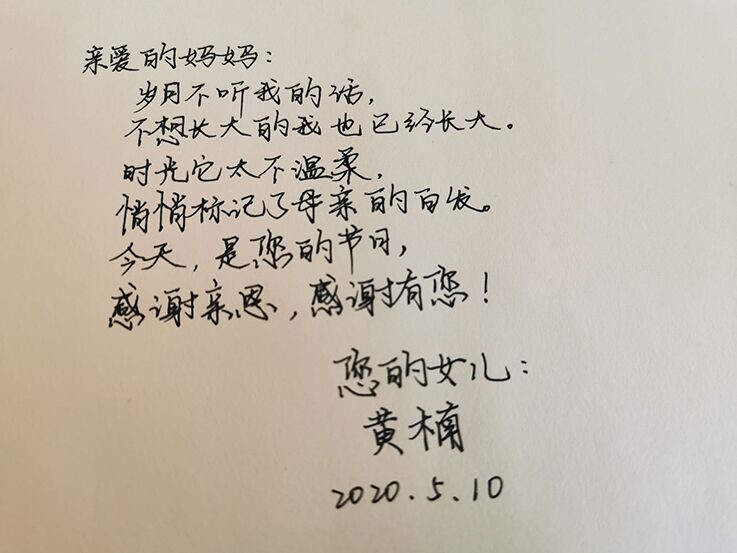 亲爱的妈妈:
岁月不听我的话,
不想长大的我也已经长大。
时光它太不温柔,
悄悄标记了母亲的白发。
今天,是您的节日,
感谢亲恩,感谢有您!
您的女儿:
黄楠
2020.5.10